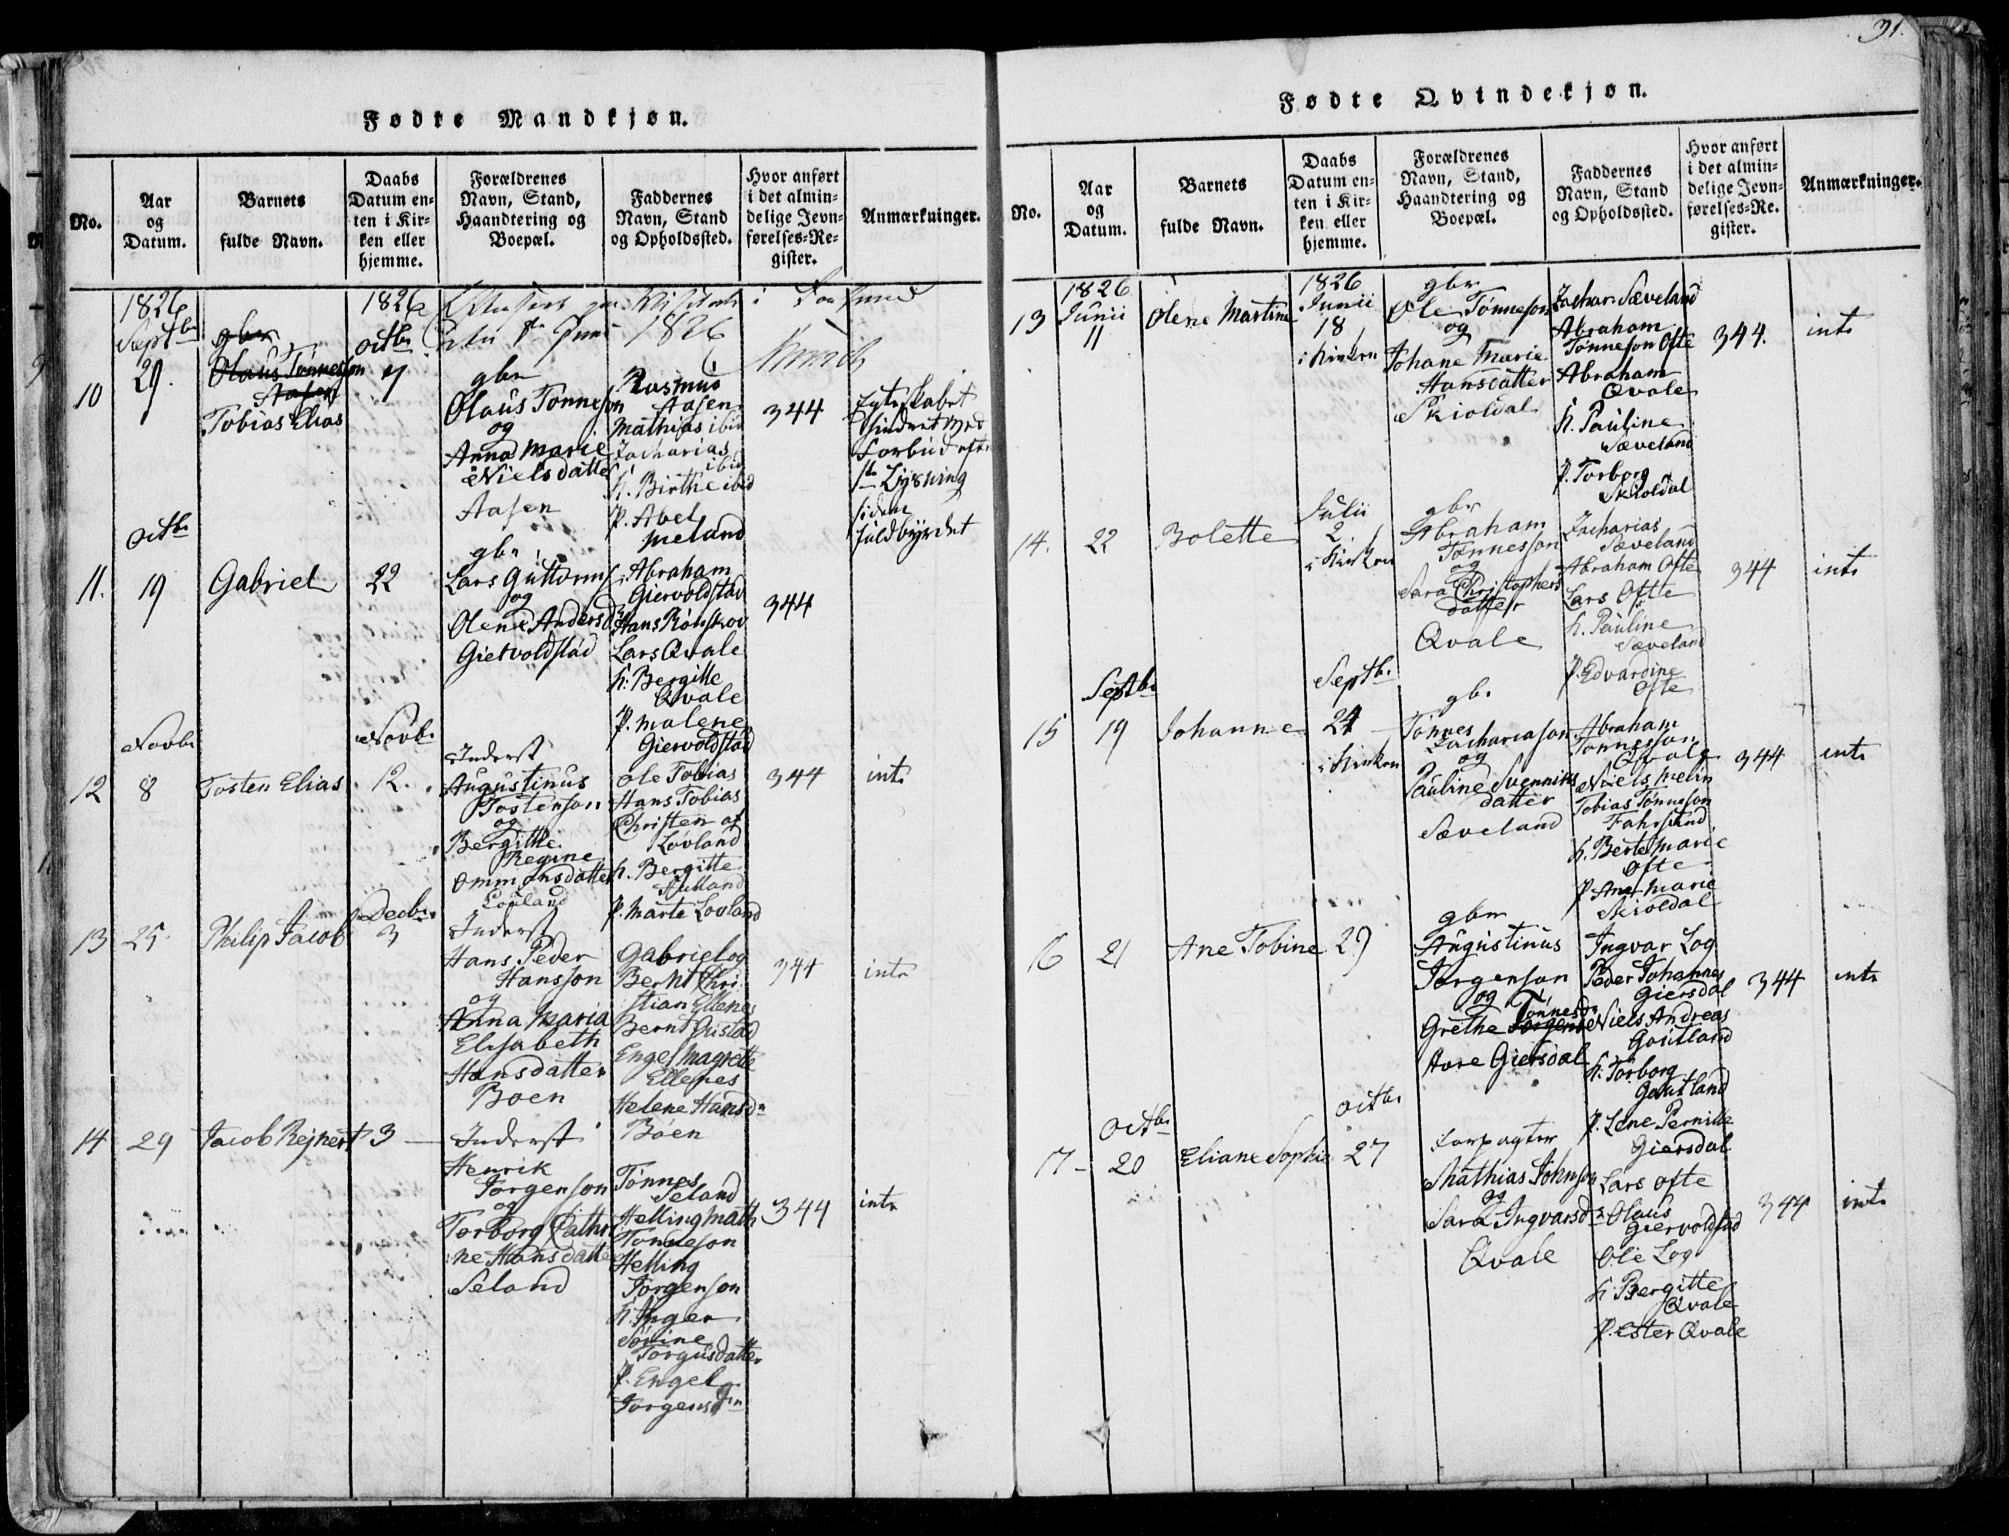 31.
Fødte Mandkjøn.
No.
Aar
og
Datum.
Barnets
fulde Navn.
Daabs
Datum en-
ten i Kir-
ken eller
hjemme.
Forældrenes
Navn, Stand,
Haandtering og
Boepæl.
Faddernes
Navn, Stand
og Opholdssted.
Hvor anført
i det almin-
delige Jevn-
førelses-Re-
gister.
Anmærkninger.
1826
Septbr
10
29.
gbr
Olaus Tønnesson
Aasen
Tobias Elias
1826
octbr
7
1826
gbr
Olaus Tønneson
og
Anna Marie
Nielsdatter
Aasen
Rasmus
Aasen
Mathias ibid
Zacharias
ibid
h. Birthe ibid
p. Abel
Meland
344
Egteskabet
hindret ved
Forbud efter
1ste Lysning
siden
fuldbyrdet
octbr
11.
19
Gabriel
22
gbr
Lars Guttorms:
og
Olene Andersdr
Giervoldstad
Abraham
Giervoldstad
Hans Rønskov
Lars Qvale
h: Bergitte
Qvale
p. Malene
Giervoldstad
344
Novbr
12
8
Tosten Elias
Novbr
12.
Inderst
Augustinus
Tostenson
og
Bergithe
Regine
Ommonsdatter
Lovland
Ole Tobias
Hans Tobias
Christen af
Løvland
h. Bergitte
p. Marte Lovland
344
intr
13
25
Philip Jacob
Decbr
3
Inderst
Hans Peder
Hansson
og
Anna Maria
Elisabeth
Hansdatter
Boen
Gabriel og
Bernt Chri-
stian Ellenes
Bernt
Engel Magrette
Ellenes
Helene Hansdr
Boen
344
intr
14
29
Jacob Rejnert
3
Inderst
Henrik
Jørgenson
og
Torborg Cathri
ne Hansdatter
Seland
Tønnes
Seland
Helling Math
Tønneson
Helling
Jørgenson
h. Inger
Sørine
Torgusdatter
p. Engel
Jørgensdr
344
intr
Fødte Qvindekjøn.
No.
Aar
og
Datum.
Barnets
fulde Navn.
Daabs
Datum en-
ten i Kir-
ken eller
hjemme.
Forældrenes
Navn, Stand,
Haandtering og
Boepæl.
Faddernes
Navn, Stand
og Opholdssted.
Hvor anført
i det almin-
delige Jevn-
førelses-Re-
gister.
Anmærkninger.
13
1826
Junii
11
Olene Martine
1826
Junii
18
i Kirken
gbr
Ole Tønneson
og
Johane Marie
Hansdatter
Skioldal
Zachar. Sæveland
Abraham
Tønneson Ofte
Abraham
Qvale
h. Pauline
Sæveland
p. Torborg
Skioldal
344.
intr
14.
22
Bolette
Julii
2
i Kirken
gbr
Abraham
Tønnesson
og
Sara Christophers
datter
Qvale
Zacharias
Sæveland
Abraham Ofte
Lars Ofte
h. Pauline
Sæveland
p. Edvardine
Ofte
344
intr
Septbr
15
19
Johanne
Septbr
24
i Kirken
gbr
Tønnes
Zachariason
og
Pauline Svennins
datter
Sæveland
Abraham
Tønnesson
Qvale
Niels Melin
Tobias Tønneson
Fahrsund
h. Berte Marie
Ofte
p. Ane Marie
Skioldal
344
intr
16
21
Ane Tobine
29
gbr
Augustinus
Jørgenson
og
Tønnesdr
Grethe Jørgens
Aore Giersdal
Ingvar Log
Peder Johannes
Giersdal
Niels Andreas
Goutland
h. Torborg
Goutland
p. Lene Pernille
Giersdal
344
intr
octbr
17
20
Eliane Sophie
octbr
27
Forpagter
Mathias Johnson
og
Sara Ingvarsdr
Qvale
Lars Ofte
Olaus
Giervoldstad
Ole Log
h. Bergitte
Qvale
p. Ester Qvale
344
intr